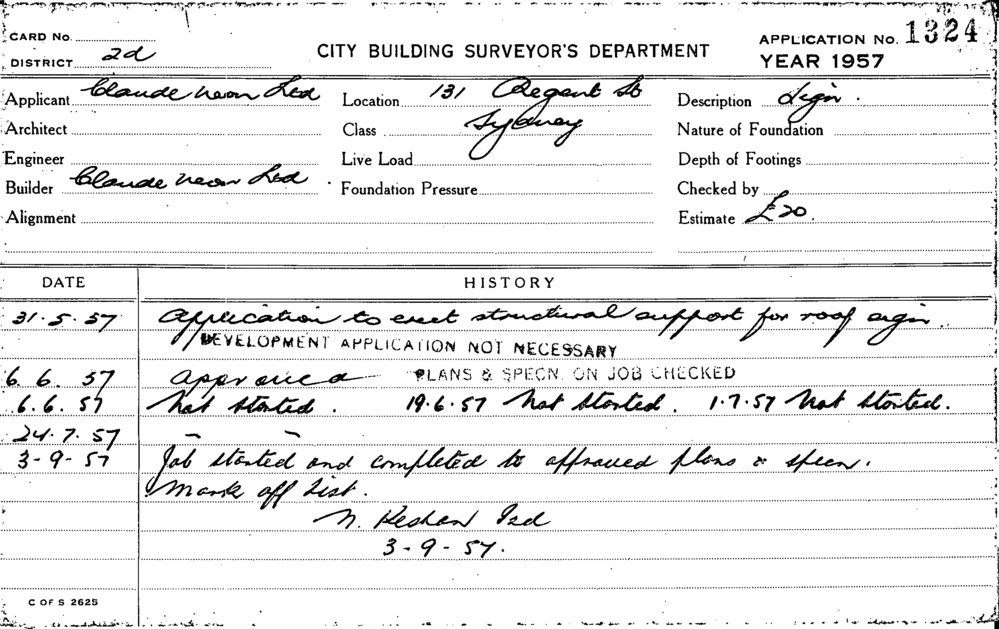 CARD No.
DISTRICT 2d
CITY BUILDING SURVEYOR'S DEPARTMENT
APPLICATION No. 1324
YEAR 1957
Applicant Claude Neon Ltd
Location 131 Regent St
Description Sign.
Architect
Class Sydney
Nature of Foundation
Engineer
Live Load
Depth of Footings
Builder Claude Neon Ltd
Foundation Pressure
Checked by
Alignment
Estimate £20.
DATE HISTORY
31.5.57 Application to erect structural support for roof sign.
DEVELOPMENT APPLICATION NOT NECESSARY
6.6.57 Approved PLANS & SPECN. ON JOB CHECKED
6.6.57 Not started. 19.6.57 Not started. 1.7.57 Not started.
24.7.57 " "
3-9-57 Job started and completed to approved plans & specn.
Mark off List.
N. Keshan
3-9-57.
C OF S 2625